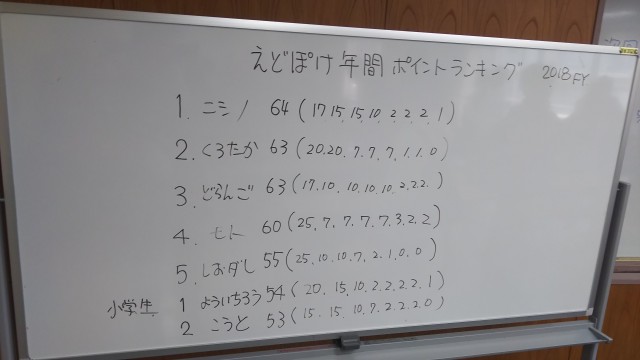 えどぽけ 年間 ポイントランキング 2018FY
1. ニシノ 64 (17.15.15.10.2.2.2.1)
2. くろたか 63 (20.20.7.7.7.1.1.0)
3. どらんご 63 (17.10.10.10.10.2.2.2.)
4. モト 60 (25.7.7.7.7.3.2.2)
5. しおダし 55 (25.10.10.7.2.1.0.0)
小学生 1 よういちろう 54 (20.15.10.2.2.2.2.1)
2 こうと 53 (15.15.10.7.2.2.2.0)